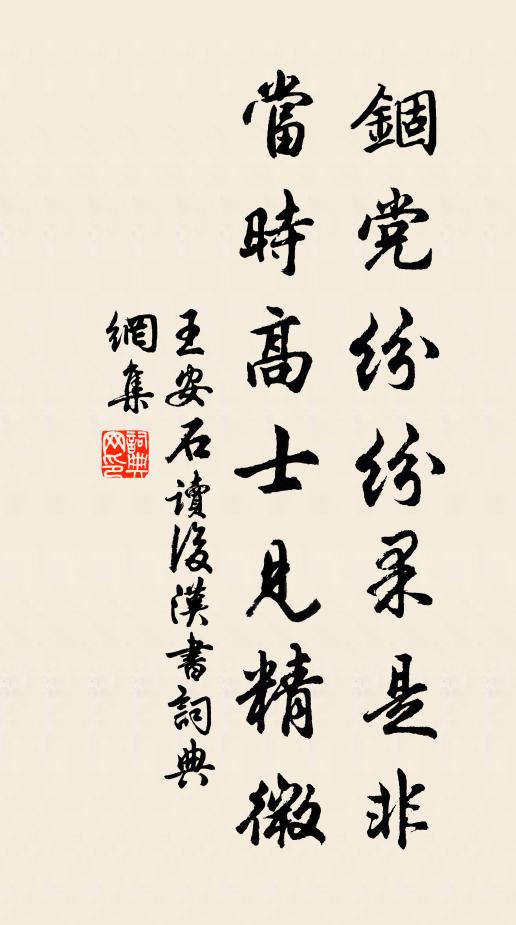 錮党紛紛果是非
當時高士見精微
王安石讀後漢書詞典
網集
詞典
网印